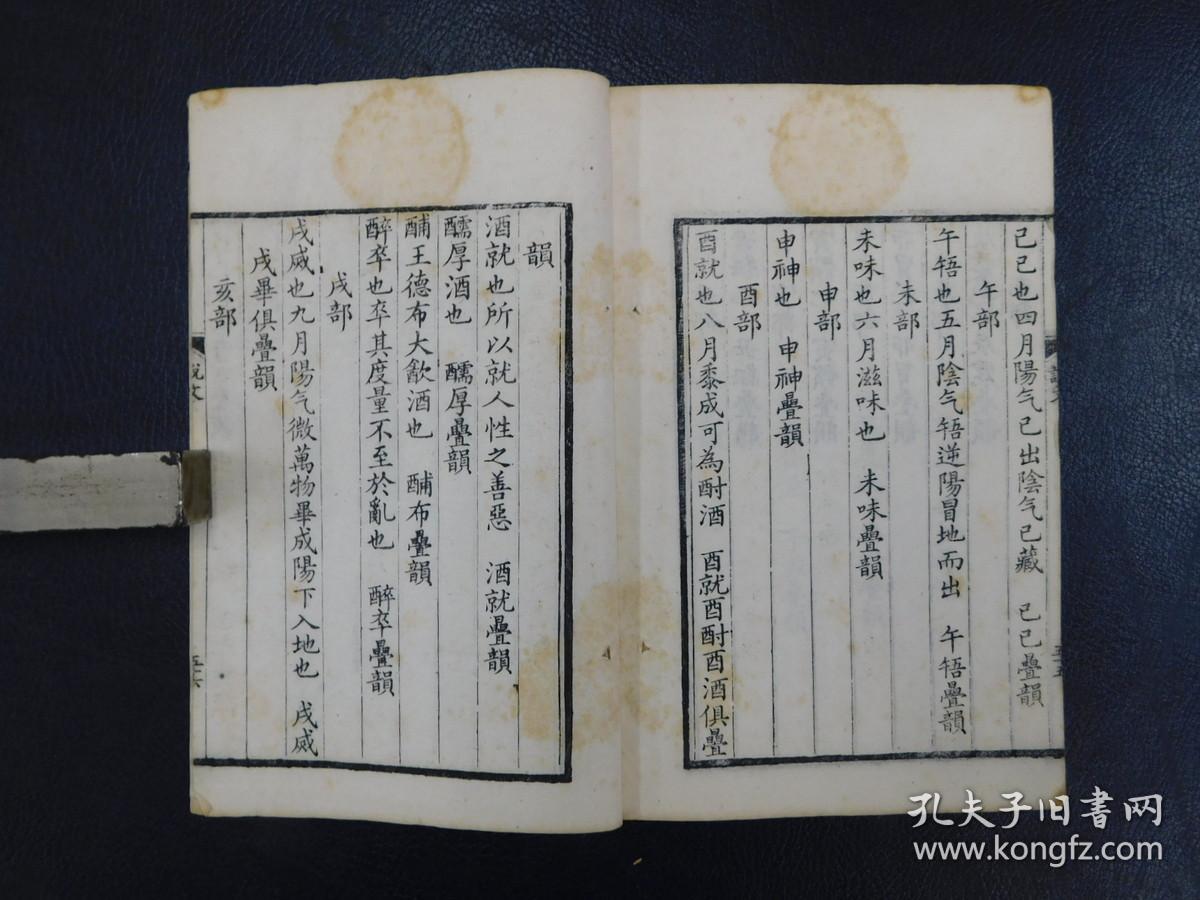 巳巳也四月陽气巳出陰气巳藏　巳巳疊韻
午部
午啎也五月陰气啎逆陽冒地而出　午啎疊韻
未部
未味也六月滋味也　未味疊韻
申部
申神也　申神疊韻
酉部
酉就也八月黍成可為酎酒　酉就酉酎酉酒俱疊
韻
酒就也所以就人性之善惡　酒就疊韻
醹厚酒也　醹厚疊韻
酺王德布大飲酒也　酺布疊韻
醉卒也卒其度量不至於亂也　醉卒疊韻
戌部
戌烕也九月陽气微萬物畢成陽下入地也　戌烕
戌畢俱疊韻
亥部
說文
五十六
五十五
孔夫子旧书网
www.kongfz.com